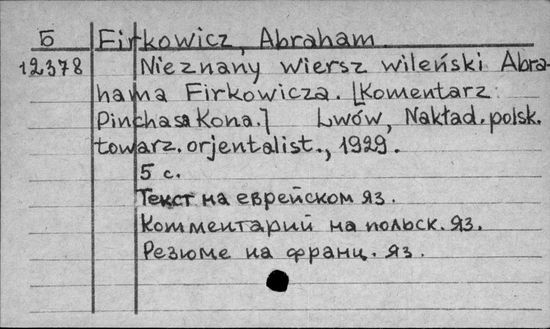 Б Firkowicz, Abraham
12378 Nieznany wiersz wileński Abra-
hama Firkowicza. [Komentarz
Pinchasa Kona.] Lwów, Nakład. polsk.
towarz. orjentalist., 1929.
5 с.
Текст на еврейском яз.
Комментарий на польск. яз.
Резюме на франц. яз.